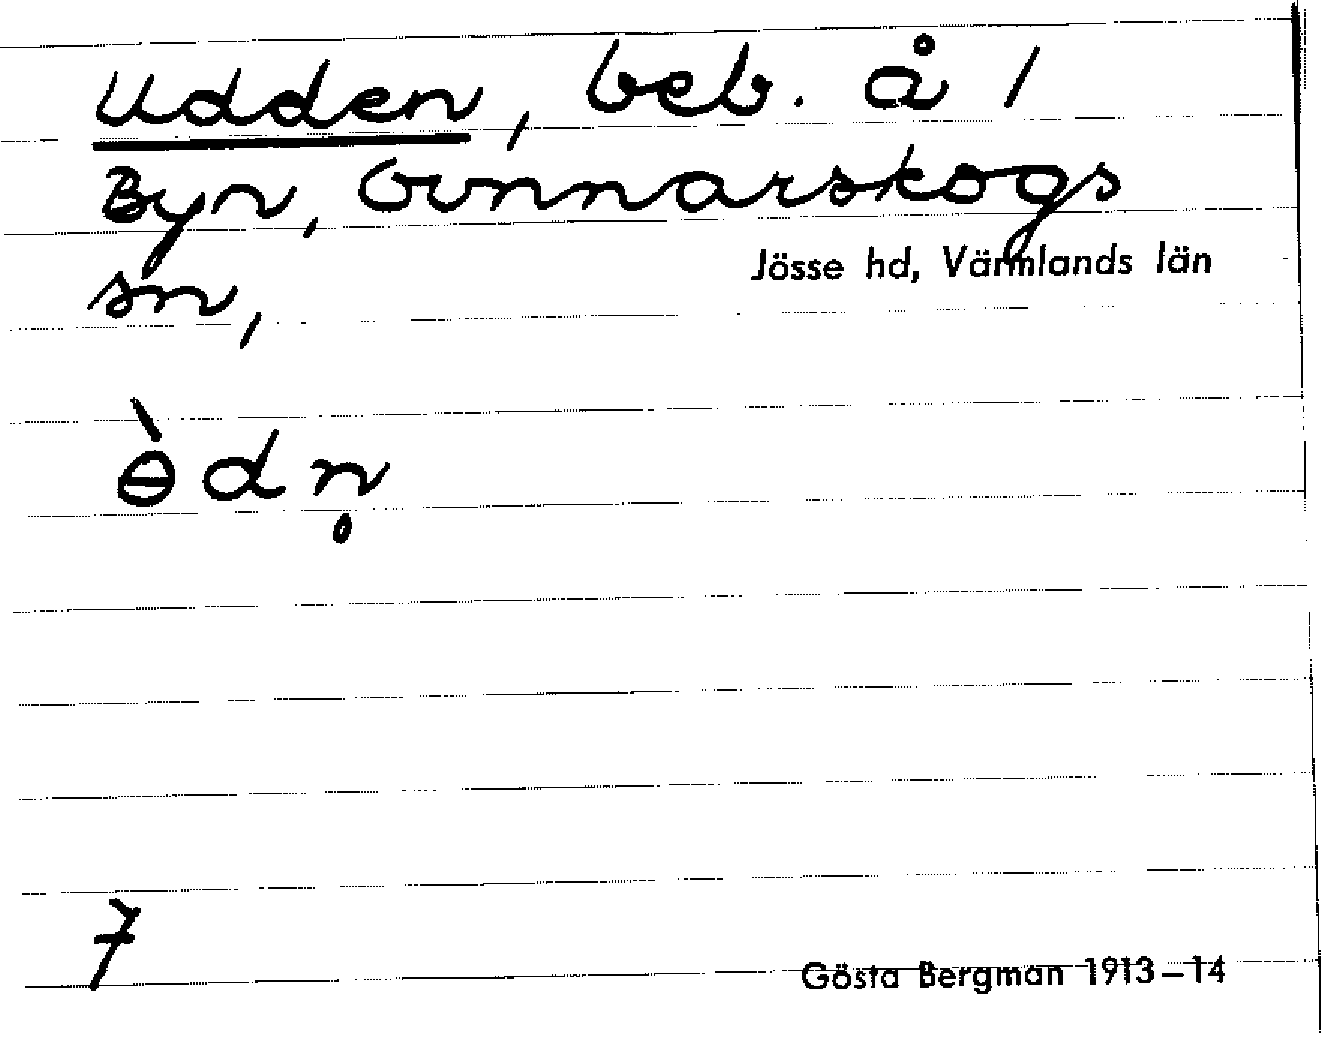 Udden, beb. å 1
Byn, Gunnarskogs
sn,
Jösse hd, Värmlands län
ɵ̀dn̥
7
Gösta Bergman 1913–14